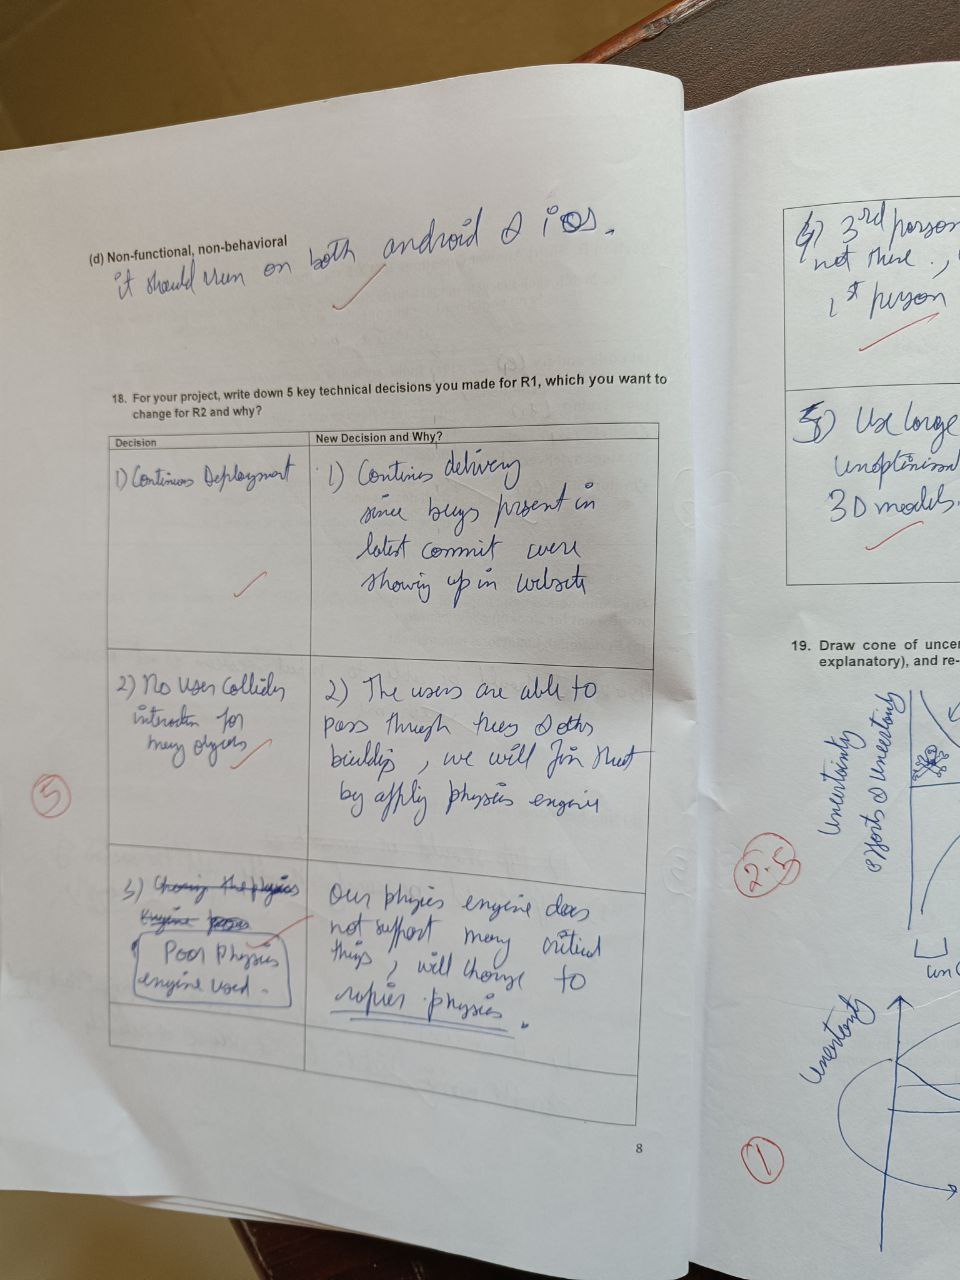 (d) Non-functional, non-behavioral
it should run on both android & ios.
18. For your project, write down 5 key technical decisions you made for R1, which you want to
change for R2 and why?
Decision
New Decision and Why?
1) Continuous Deployment
1) Continues delivery
since bugs present in
latest commit were
showing up in website
2) No user collider
interaction for
many objects
2) The users are able to
pass through trees & other
buildings, we will fix that
by apply physics engine
5
3) Chosing the physics
Engine
Poor Physics
engine used.
Our physics engine does
not support many critical
things, will change to
rapier physics.
8
4) 3rd person
not there.,
1st person
5) Use large
unoptimized
3D models.
19. Draw cone of uncer
explanatory), and re-
Uncertainty
efforts & uncertainty
2.5
Uncertainty
1